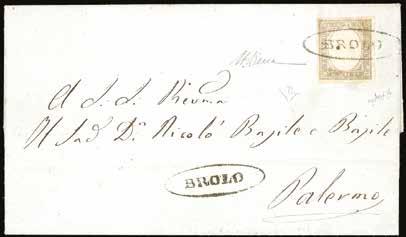 BROLO
A S. S. Riuma
Il Sad. Dn. Nicolò Basile e Basile
BROLO
Palermo